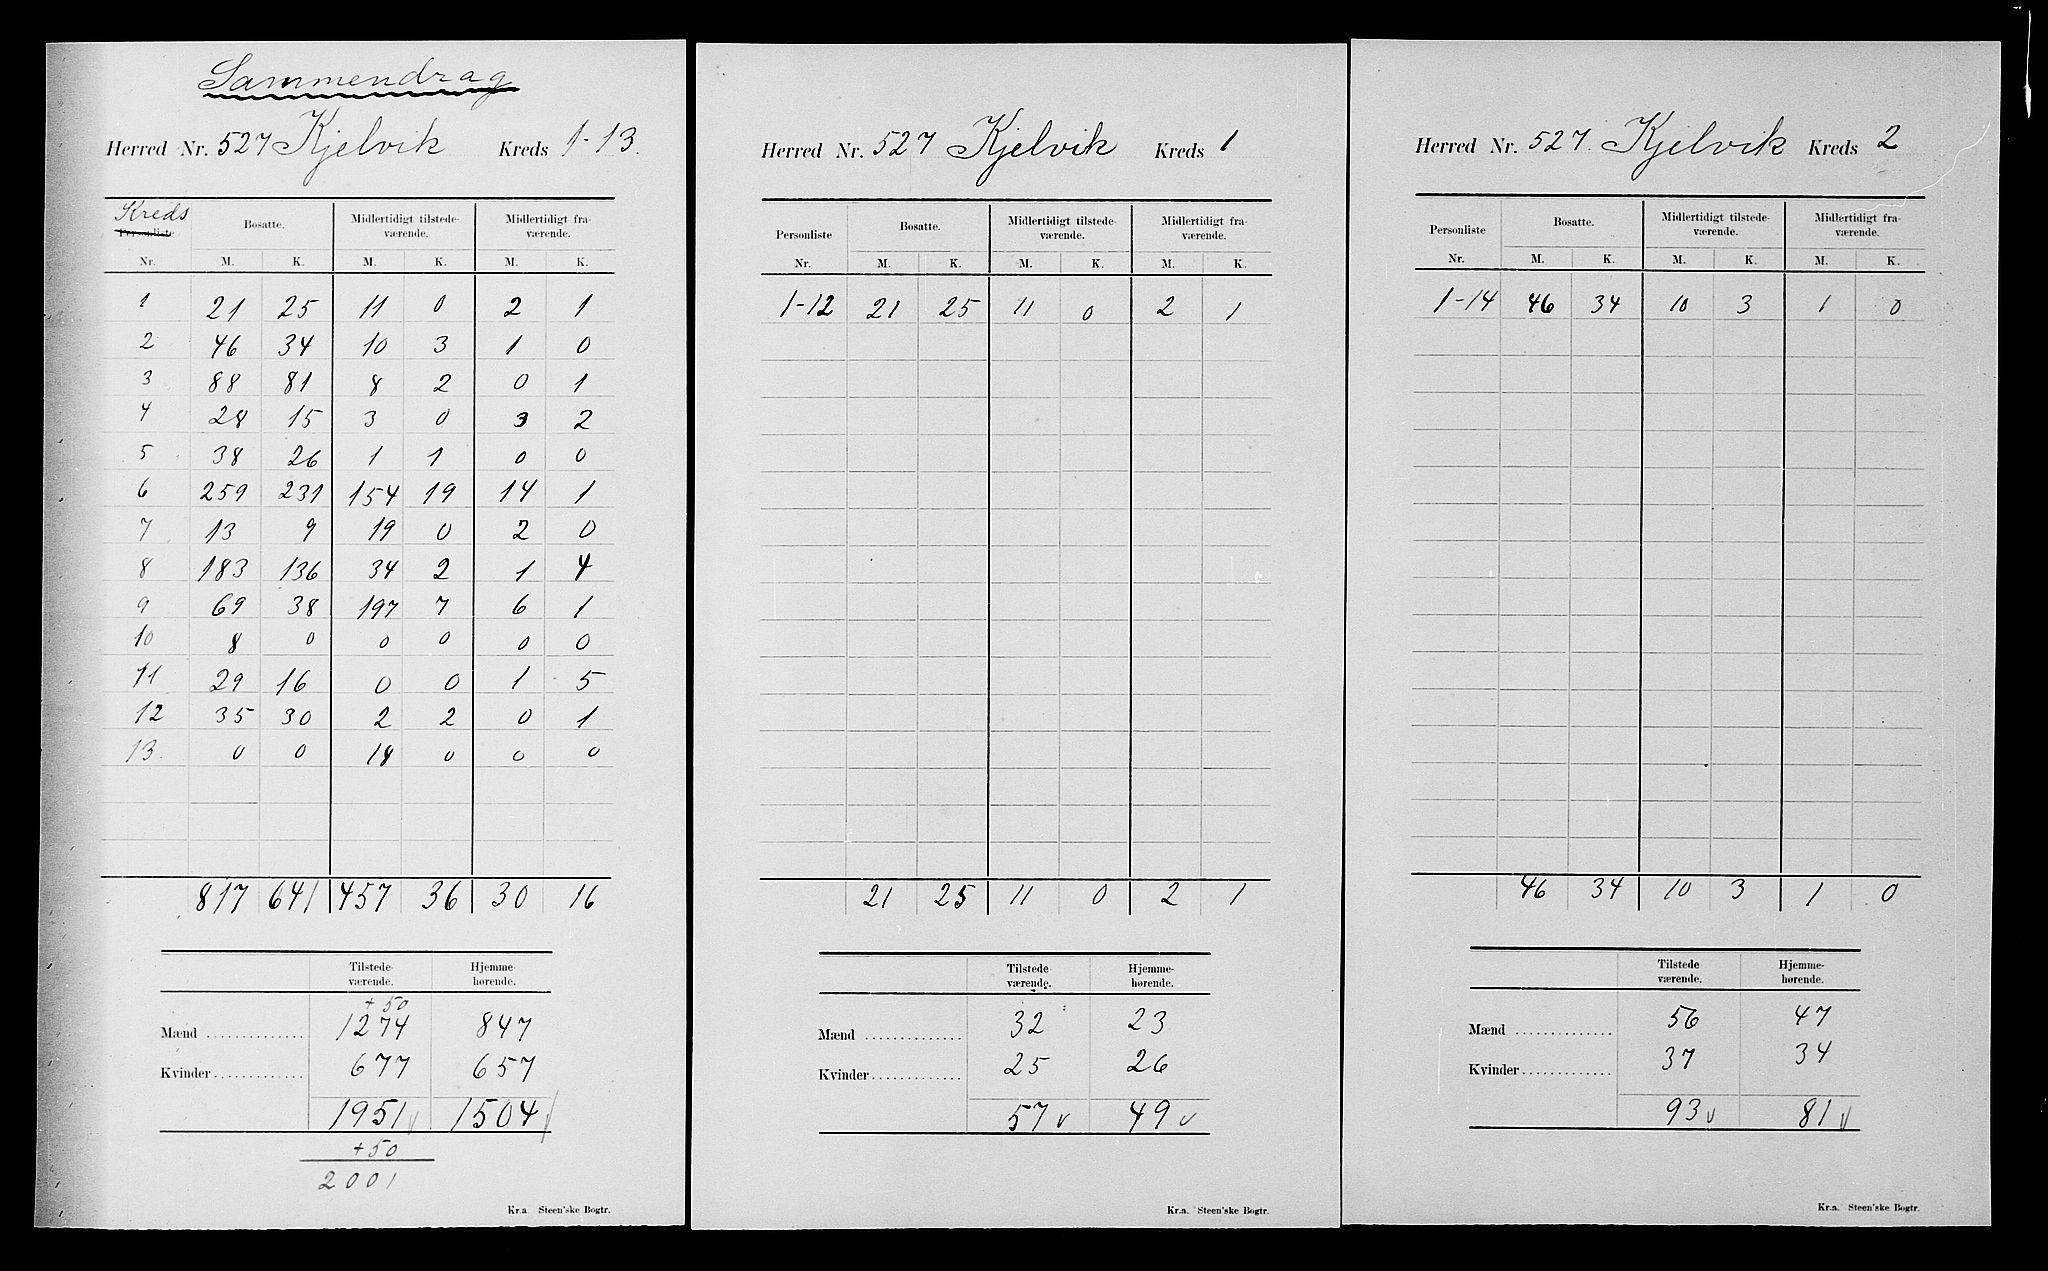 Sammendrag
Herred Nr. 527 Kjelvik Kreds 1-13.
Kreds
Personliste Bosatte. Midlertidigt tilstede- Midlertidigt fra-
værende. værende.
Nr. M. K. M. K. M. K.
1 21 25 11 0 2 1
2 46 34 10 3 1 0
3 88 81 8 2 0 1
4 28 15 3 0 3 2
5 38 26 1 1 0 0
6 259 231 154 19 14 1
7 13 9 19 0 2 0
8 183 136 34 2 1 4
9 69 38 197 7 6 1
10 8 0 0 0 0 0
11 29 16 0 0 1 5
12 35 30 2 2 0 1
13. 0 0 18 0 0 0
817 641 457 36 30 16
Tilstede- Hjemme-
værende. hørende.
+50
Mænd .............. 1274 847
Kvinder ............. 677 657
1951 v 1504 v
+50
2001
Kr.a. Steen'ske Bogtr.
Herred Nr. 527 Kjelvik Kreds 1
Personliste Bosatte. Midlertidigt tilstede- Midlertidigt fra-
værende. værende.
Nr. M. K. M. K. M. K.
1-12 21 25 11 0 2 1
21 25 11 0 2 1
Tilstede Hjemme-
værende. hørende.
Mænd .............. 32 23
Kvinder ............. 25 26
57 v 49 v
Kr.a. Steen'ske Bogtr.
Herred Nr. 527. Kjelvik Kreds 2
Personliste Bosatte. Midlertidigt tilstede- Midlertidigt fra-
værende. værende.
Nr. M. K. M. K. M. K.
1-14 46 34 10 3 1 0
46 34 10 3 1 0
Tilstede Hjemme-
værende. hørende.
Mænd .............. 56 47
Kvinder ............. 37 34
93 v 81 v
Kr.a. Steen'ske Bogtr.